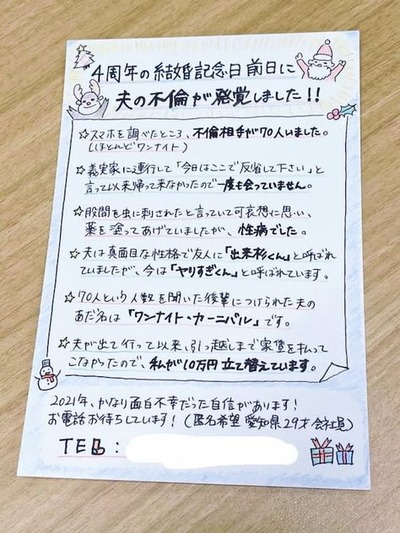 4周年の結婚記念日前日に
夫の不倫が発覚しました!!
☆スマホを調べたところ、不倫相手が70人いました。
(ほとんどワンナイト)
☆義実家に連行して「今日はここで反省して下さい」と
言って以来帰って来なかったので一度も会っていません。
☆股間を虫に刺されたと言っていて可哀想に思い、
薬を塗ってあげていましたが、性病でした。
☆夫は真面目な性格で友人に「出来杉くん」と呼ばれ
ていましたが、今は「ヤリすぎくん」と呼ばれています。
☆70人という人数を聞いた後輩につけられた夫の
あだ名は「ワンナイト・カーニバル」です。
☆夫が出て行って以来、引っ越しまで家賃を払って
こなかったので、私が10万円立て替えています。
2021年、かなり面白不幸だった自信があります!
お電話お待ちしています!(匿名希望 愛知県29才会社員)
TEL: